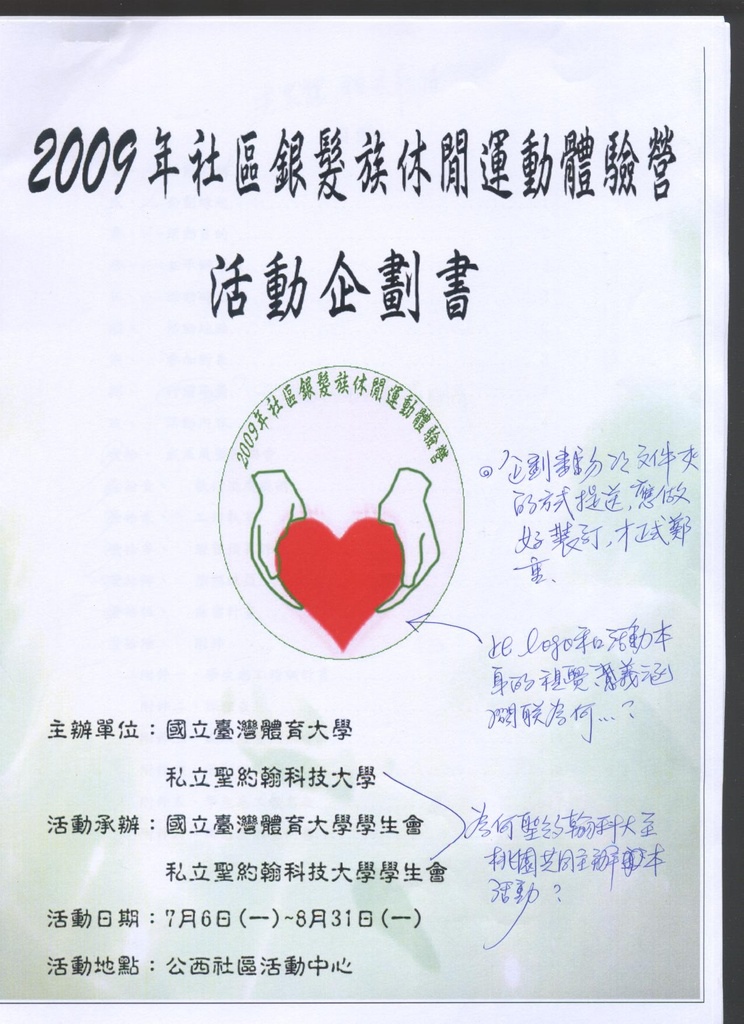 2009年社區銀髮族休閒運動體驗營
活動企劃書
2009年社區銀髮族休閒運動體驗營
企劃書勿以文件夾
的方式提送,應做
好裝訂,才正式鄭
重、
此logo和活動本
身的視覺 義涵
關联為何...?
主辦單位:國立臺灣體育大學
私立聖約翰科技大學
活動承辦:國立臺灣體育大學學生會
私立聖約翰科技大學學生會
為何聖約翰科大至
桃園共同主辦 本
活動?
活動日期:7月6日(一)~8月31日(一)
活動地點:公西社區活動中心